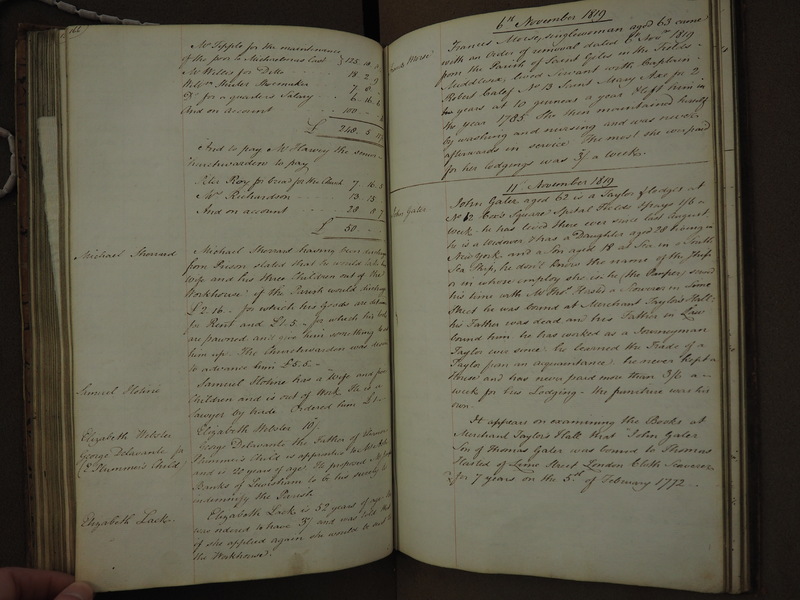 Mr Sipple for the maintenance
of the poor to Michaelmas last 125
Mr Wells for Ditto 18. 2. 9
Shoemaker 7. 8
Do for a quarters Salary 6. 16. 6
And on account 100
£ 248. 5
And to pay Mr Harvey the
Churchwarden to pay
Peter Roy for bread for the Church 7. 16. 5
Mr. Richardson 13. 15
And on account 28. 8. 7
£ 50
Michael Sherrard
Michael Sherrard having been
from Prison stated that he would take his
Wife and his three Children out of the
Workhouse if the Parish would
£2. 16. for which his Goods are
for Rent and £1. 5. for which his
are pawned and give him something to
him up. The Churchwarden was
to advance him £5. 5. –
Samuel Holme
Samuel Holme has a Wife and four
Children and is out of Work He is a
Sawyer by trade Ordered him £1
Elizabeth Webster
Elizabeth Webster 10/
George Delawante for
(E Plummer's Child)
George Delawante the Father of
Plummer's Child is apprentice to
and is 20 years of age. He proposed
Banks of Lewisham to be his surety to
indemnify the Parish
Elizabeth Lack
Elizabeth Lack is 52 years of age
was ordered to have 3/ and was told that
if she applied again she would be
the Workhouse
6th November 1819
Frances Morse
Frances Morse, singlewoman aged 63 came
with an Order of removal dated 6th Novr 1819
from the Parish of Saint Giles in the Fields
Middlesex lived Servant with Captain
Robert Calef No 13 Saint Mary Axe for 2
years at 10 guineas a year & left him in
the year 1785. She then maintained herself
by washing and nursing and was never
afterwards in service The most she ever paid
for her lodgings was 3/ a week.
11th November 1819
John Galer
John Galer aged 62 is a Taylor & lodges at
No 12 Square Spital Fields & pays 1/6 a
week he has lived there ever since last August.
he is a widower & has a Daughter aged 28 living in
New York and a Son aged 18 at Sea in a South
Sea Ship, he don't know the name of the Ship
or in whose employ she is, he (the Pauper) served
his time with Mr Thos. Hasted a Scowerer in Lime
Street he was bound at Merchant Taylor's Hall:
his Father was dead and his Father in Law
bound him he has worked as a Journeyman
Taylor ever since: he learned the Trade of a
Taylor from an acquaintance: he never kept a
House and has never paid more than 3/6 a
week for his Lodging - the furniture was his
own.
It appears on examining the Books at
Merchant Taylor's Hall that John Galer
Son of Thomas Galer was bound to Thomas
Hasted of Lime Street London Cloth Scowerer
for 7 years on the 5th of February 1772